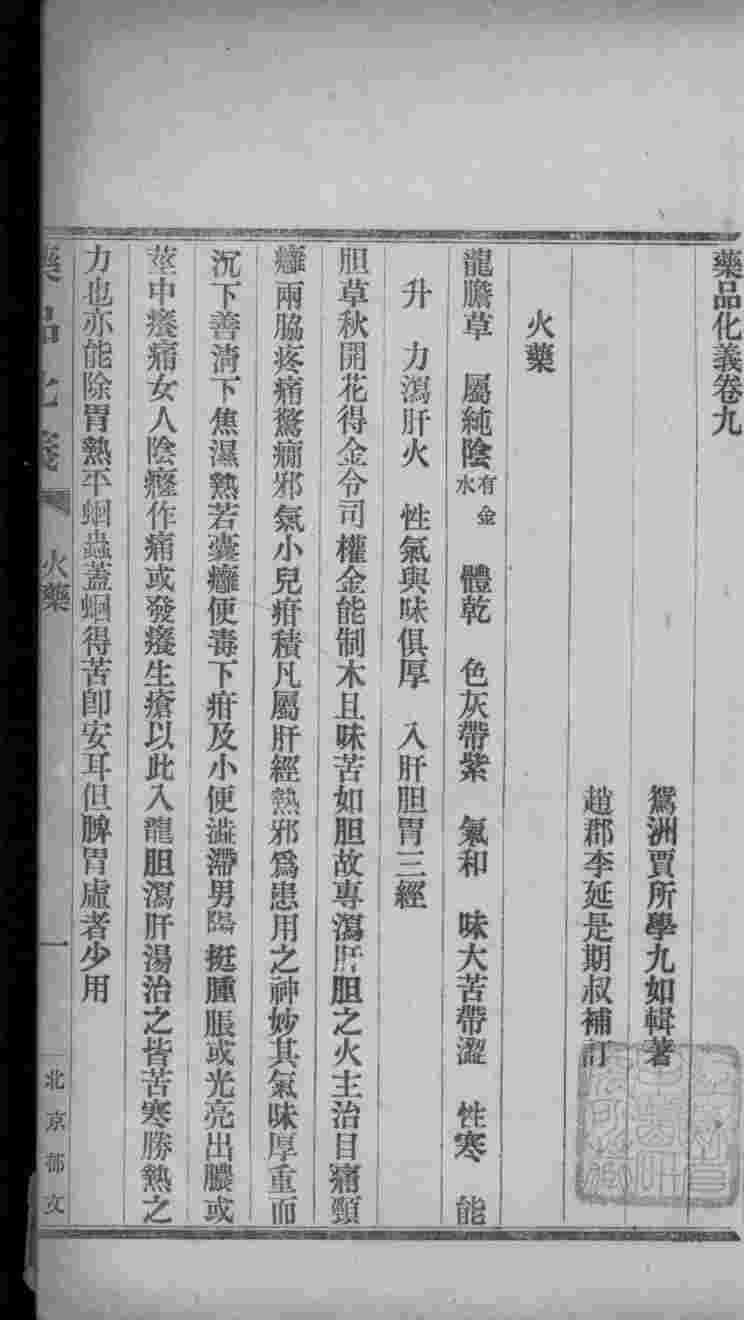 藥品化義卷九
鴛洲賈所學九如輯著
趙郡李延是期叔補訂
火藥
龍膽草 屬純陰有金水 體乾 色灰帶紫 氣和 味大苦帶澀 性寒 能
升 力瀉肝火 性氣與味俱厚 入肝胆胃三經
胆草秋開花得金令司權金能制木且味苦如胆故專瀉肝胆之火主治目痛頸
癰兩脇疼痛驚癇邪氣小兒疳積凡屬肝經熱邪爲患用之神妙其氣味厚重而
沉下善清下焦濕熱若囊癰便毒下疳及小便澁滯男陽挺腫脹或光亮出膿或
莖中癢痛女人陰癃作痛或發癢生瘡以此入龍胆瀉肝湯治之皆苦寒勝熱之
力也亦能除胃熱平蛔蟲蓋蛔得苦卽安耳但脾胃虛者少用
藥品化義 火藥 一 北京郁文